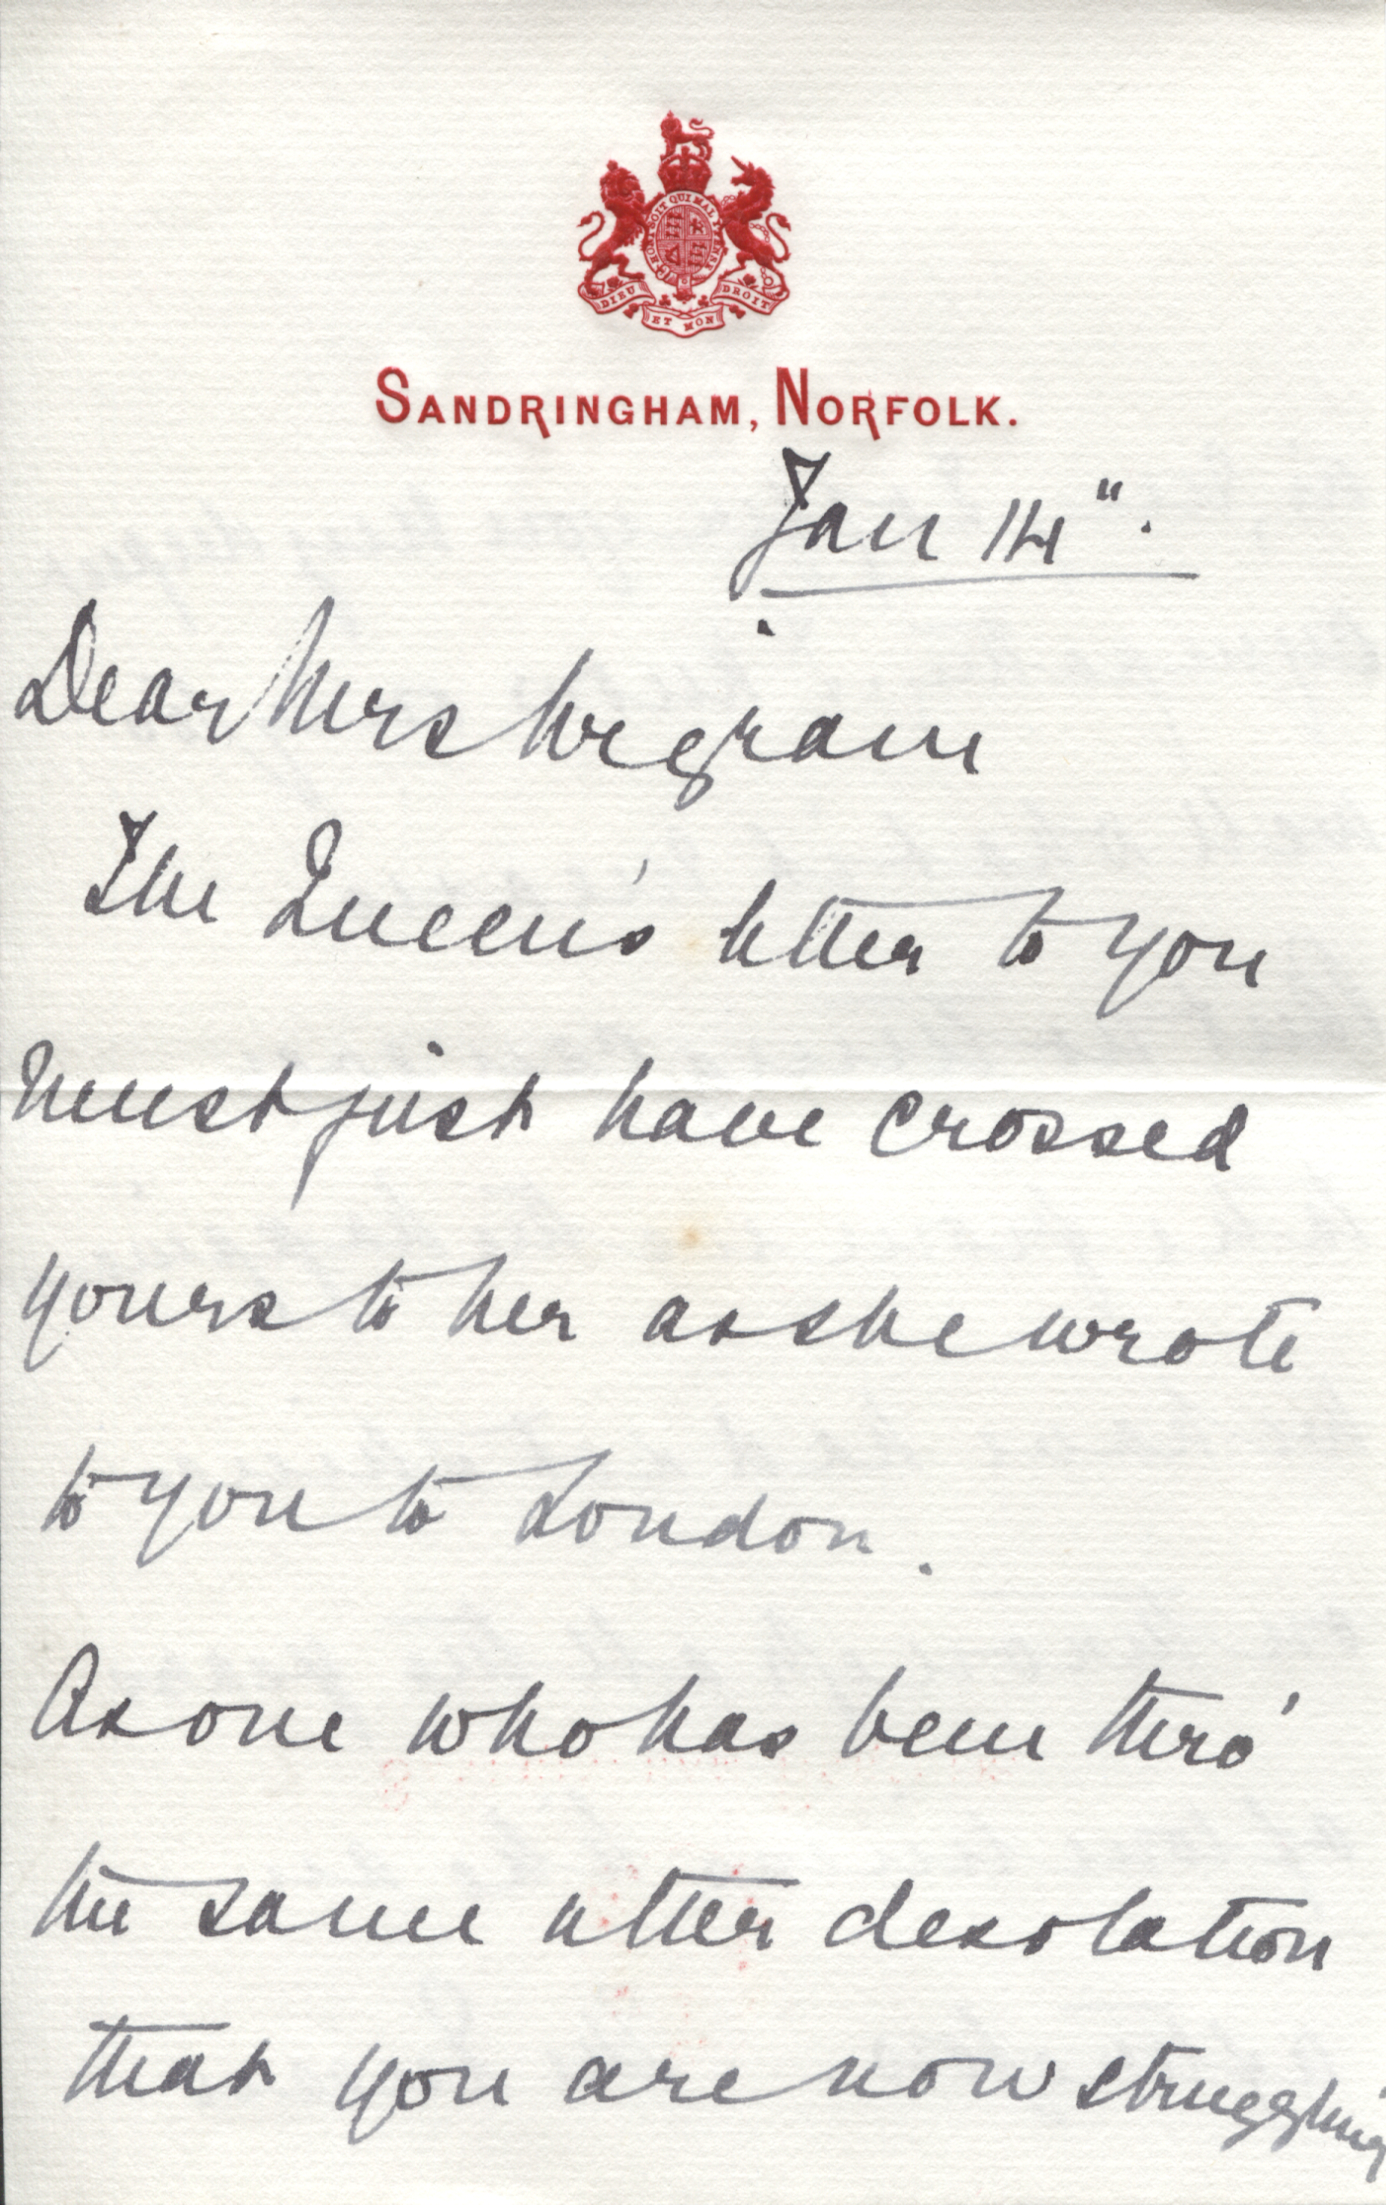 HONI SOIT QUI MAL Y PENSE
DIEU ET MON DROIT
SANDRINGHAM, NORFOLK.
Jan 14".
Dear Mrs Wigram
The Queen's letter to you
must just have crossed
yours to her as she wrote
to you to London.
As one who has been thro'
the same utter desolation
that you are now struggling